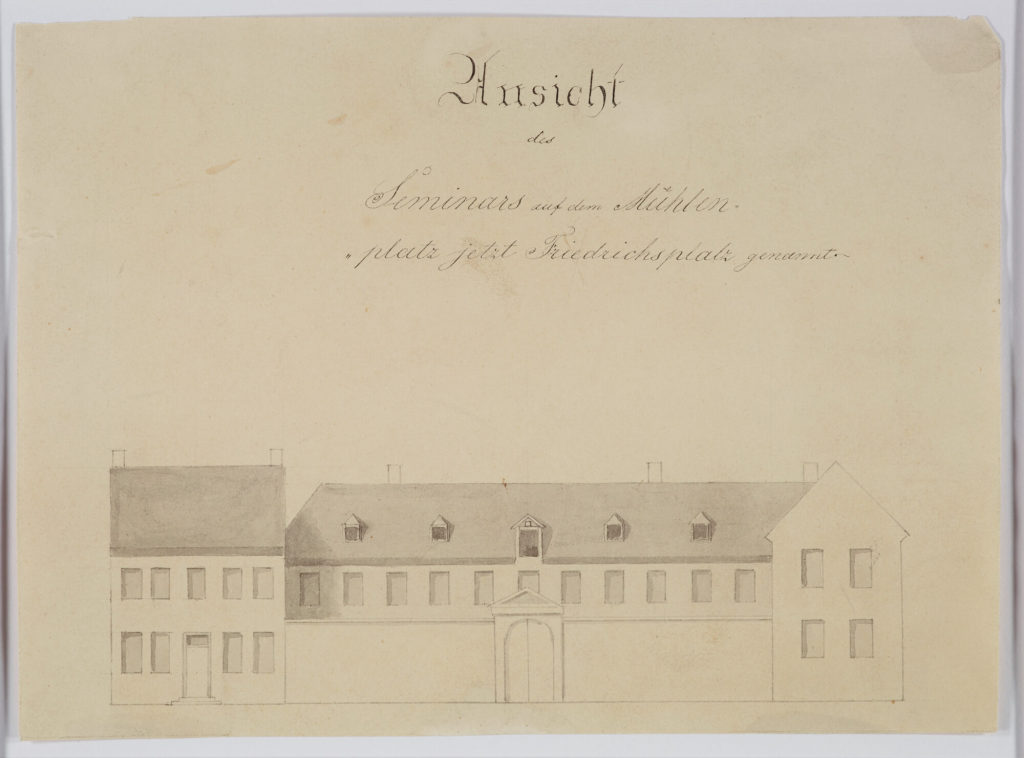 Ansicht
des
Seminars auf dem Mühlen-
„platz jetzt Friedrichsplatz genannt.